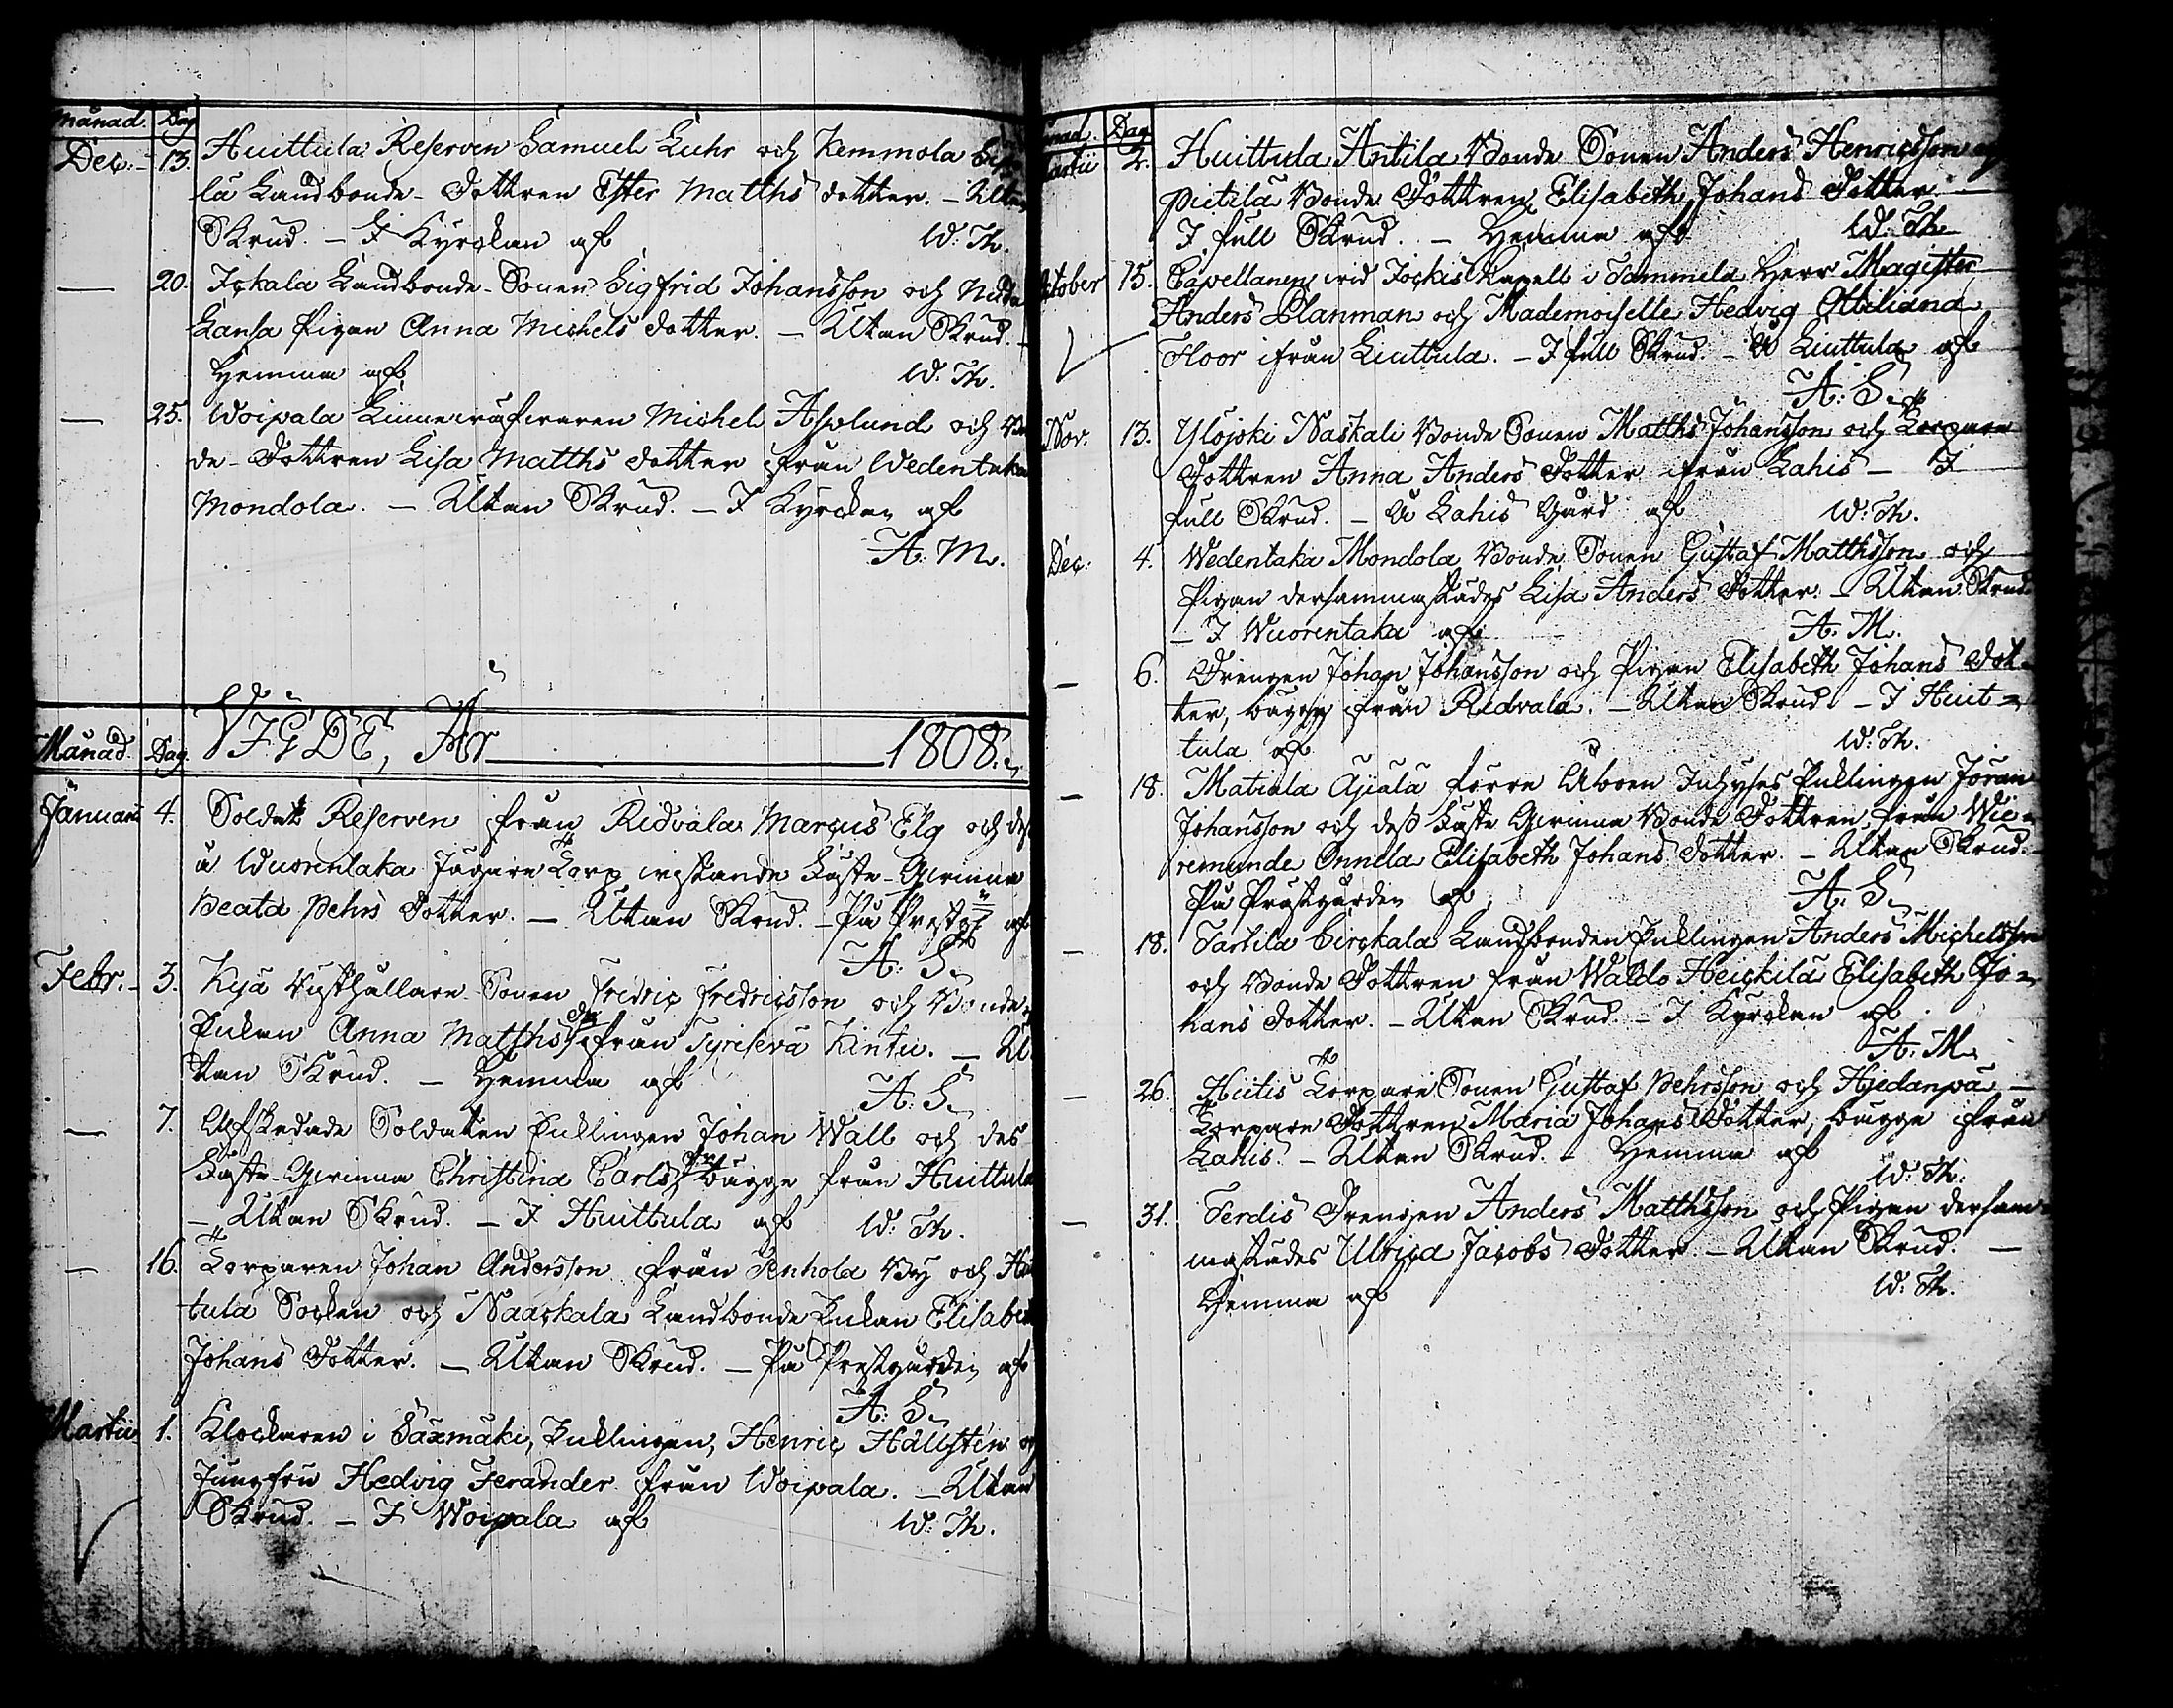 Månad. Dag
Dec. - 13. Huittula Reserven Samuel Luhr och Kemmola
la Landbonde-Dottren Ester Matths dotter. - Utan
Skrud. - I Kyrckan af W: Th.
— 20. Ickala Landbonde-Sonen Sigfrid Johansson och
Lansa Pigan Anna Michels dotter. - Utan Skrud. -
Hemma af W. Th.
— 25. Woipala Linnewäfwaren Michel Asplund och Bon
de-Dottren Lisa Matths dotter från Wedentaka
Mondola. - Utan Skrud. - I Kyrckan af
A: M.
VIGDE, År 1808.
Månad. Dag.
Januarii 4. Soldats Reserven från Ridvala Marcus Elg och dess
å Wuorentaka Jägare Torp wistande Fäste-Qwinna
Beata Pehrs Dotter. — Utan Skrud. - På Prestg: af
A: S.
Febr. - 3. Kyä Rusthållare-Sonen Fredric Fredricsson och Bonde-
Enkan Anna Matths dr från Tyriseva Kintu. — U-
tan Skrud. — Hemma af
A: S.
— 7. Afskedade Soldaten Enklingen Johan Wall och des
Fäste-Qwinna Christina Carls dr bägge från Huittula
— Utan Skrud. - I Huittula af W: Th.
— 16. Torparen Johan Andersson från Penhola By och
tula Socken och Naackala Landbonde Enkan Elisabeth
Johans Dotter. — Utan Skrud. — På Prestgården af
A: S.
Martii 1. Klockaren i Säxmäki, Enklingen, Henric Hällsten och
Jungfru Hedvig Ferander från Woipala. - Utan
Skrud. - I Woipala af W: Th.
Månad. Dag
Martii 2. Huittula Antila Bonde Sonen Anders Henricsson och
Pietilä Bonde Dottren Elisabeth Johans Dotter
I full Skrud. - Hemma af W: Th.
October 15. Capellanen wid Jockis Kapell i Tammela Herr Magister
Anders Planman och Mademoiselle Hedvig Ottiliana
Floor ifrån Liuttula. - I full Skrud. - Å Liuttula af
A: S.
Nov: 13. Ylöjoki Naskali Bonde Sonen Matths Johansson och Torpare
Dottren Anna Anders Dotter ifrån Lahis - I
full Skrud. - Å Lahis Gård af W: Th.
Dec: 4. Wedentaka Mondola Bonde Sonen Gustaf Matthsson och
Pigan dersammastädes Lisa Anders Dotter. - Utan Skrud.
- I Wuorentaka af A: M.
— 6. Drengen Johan Johansson och Pigan Elisabeth Johans Dot-
ter, bägge ifrån Ridvala. - Utan Skrud - I Huit-
tula af W: Th.
— 18. Matiala Ajiälä Inhyses Enklingen Jöran
Johansson och dess Fäste Qwinna Bonde Dottren från Wie-
remunde Onnela Elisabeth Johans dotter. - Utan Skrud.
På Prästgården af
A: S.
— 18. Tarttila Circkala Landbonden Enklingen Anders Michelsson
och Bonde Dottren från Waldo Heickilä Elisabeth Jo-
hans dotter. - Utan Skrud. - I Kyrckan af
A: M.
— 26. Hiitis Torpare Sonen Gustaf Pehrsson och Hjedanpä -
Torpare Dottren Maria Johans Dotter, bägge ifrån
Lahis. - Utan Skrud. - Hemma af
W: Th.
— 31. Terdis Drengen Anders Matthsson och Pigan dersam-
mastädes Ulrica Jacobs Dotter. - Utan Skrud. —
Hemma af W: Th.